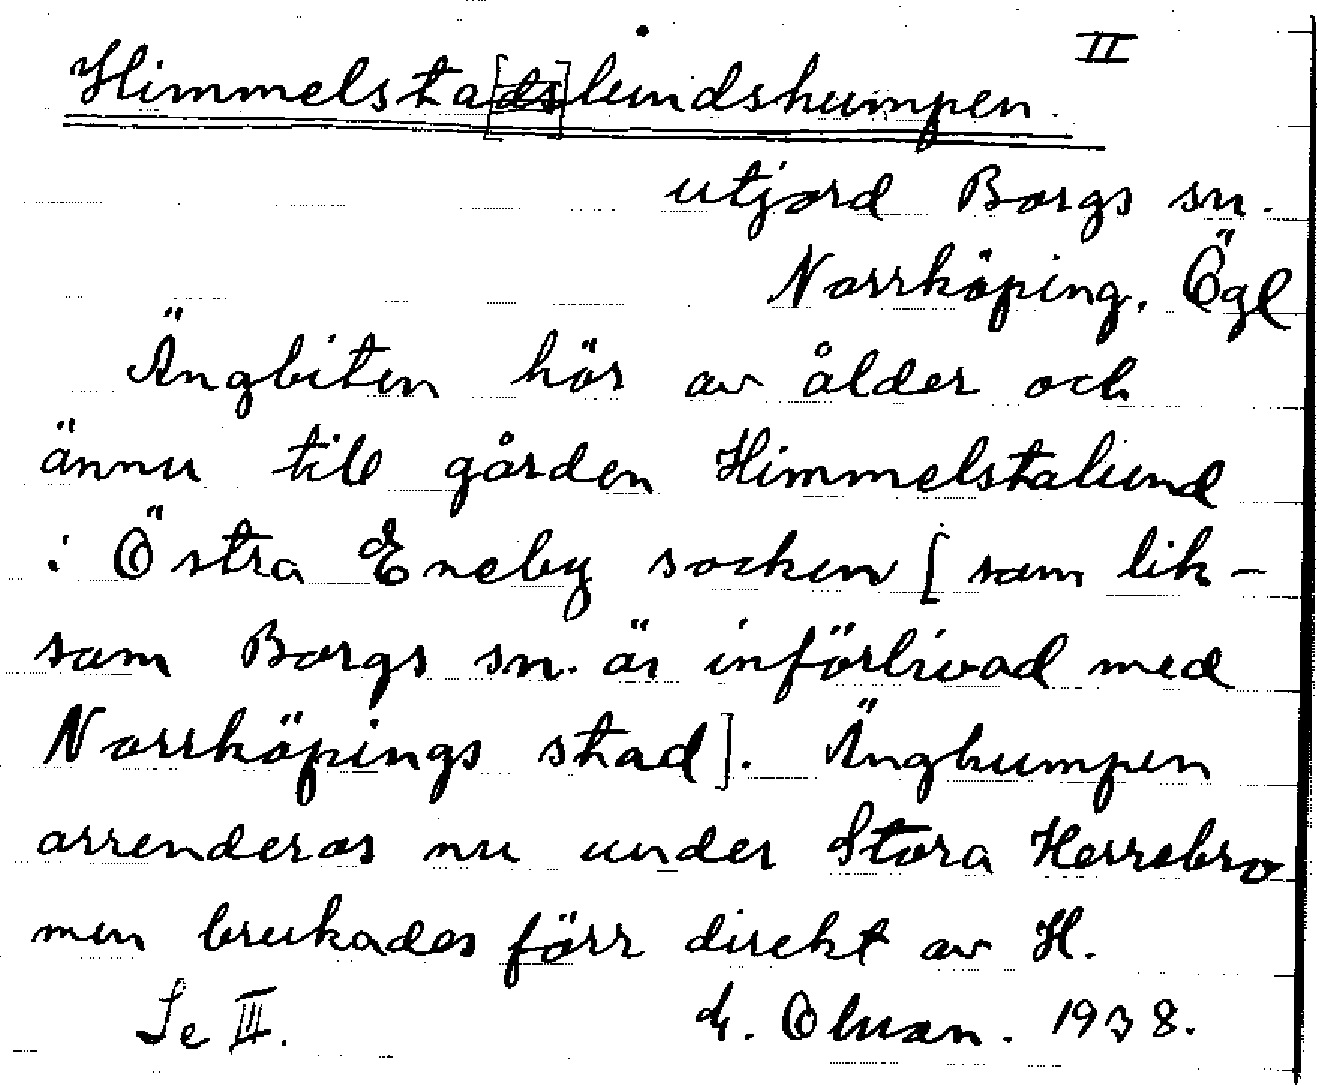 II
Himmelsta[ds]lundshumpen.
utjord Borgs sn.
Norrköping. Ögl
Ängbiten hör av ålder och
ännu till gården Himmelstalund
i Östra Eneby socken [som lik-
som Borgs sn. är införlivad med
Norrköpings stad]. Änghumpen
arrenderas nu under Stora Herrebro
men brukades förr direkt av H.
Se III.
1938.